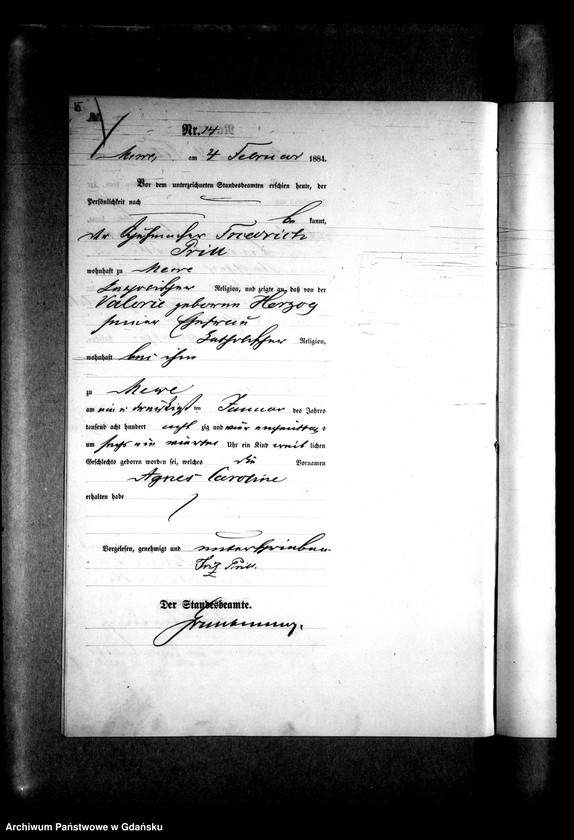 Nr. 14.
Mewe, am 4 Februar 1884.
Vor dem unterzeichneten Standesbeamten erschien heute, der
Persönlichkeit nach
be kannt,
der Friedrich
Prill
wohnhaft zu Mewe
Religion, und zeigte an, daß von der
Valerie geborenen Herzog
seiner Ehefrau
katholischer Religion,
wohnhaft bei ihm
zu Mewe
am ein u dreißigsten Januar des Jahres
tausend acht hundert acht zig und vier
um sechs ein viertel Uhr ein Kind weib lichen
Geschlechts geboren worden sei, welches die Vornamen
Agnes Caroline
erhalten habe
Vorgelesen, genehmigt und unterschrieben.
Fritz Prill.
Der Standesbeamte.
Archiwum Państwowe w Gdańsku